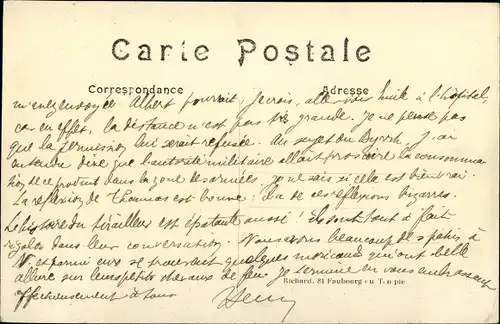 Carte Postale
Correspondance Adresse
m'avez envoyée. Albert pourrait, je crois, aller voir Emile à l'hôpital,
car en effet, la distance n'est pas très grande. Je ne pense pas
que la permission lui serait refusée. Au sujet du Byrrh, j'ai
entendu dire que l'autorité militaire allait proscrire la consomma-
tion de ce produit dans la zone des armées, je ne sais si cela est bien vrai.
La réflexion de Thomas est bonne; il a de ces réflexions bizarres.
L'histoire du tirailleur est épatante aussi! ils sont tout à fait
rigolos dans leur conversation. Nous avons beaucoup de spahis à
V. et parmi eux se trouvent quelques marocains qui ont belle
allure sur leurs petits chevaux de feu. Je termine en vous embrassant
affectueusement à tous
Richard, 81 Faubourg du Temple